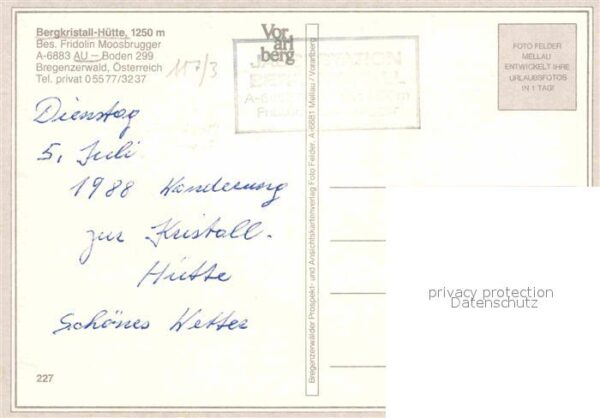 Bergkristall-Hütte, 1250 m
Bes. Fridolin Moosbrugger
A-6883 AU – Boden 299
Bregenzerwald, Österreich
Tel. privat 0 55 77/32 37
Vor
arl
berg
FOTO FELDER
MELLAU
ENTWICKELT IHRE
URLAUBSFOTOS
IN 1 TAG!
Dienstag
5. Juli
1988 Wanderung
zur Kristall-
Hütte
Schönes Wetter
227
Bregenzerwälder Prospekt- und Ansichtskartenverlag Foto Felder, A-6881 Mellau / Vorarlberg
privacy protection
Datenschutz